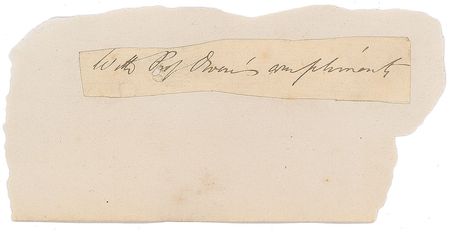 With Prof Owen's compliments